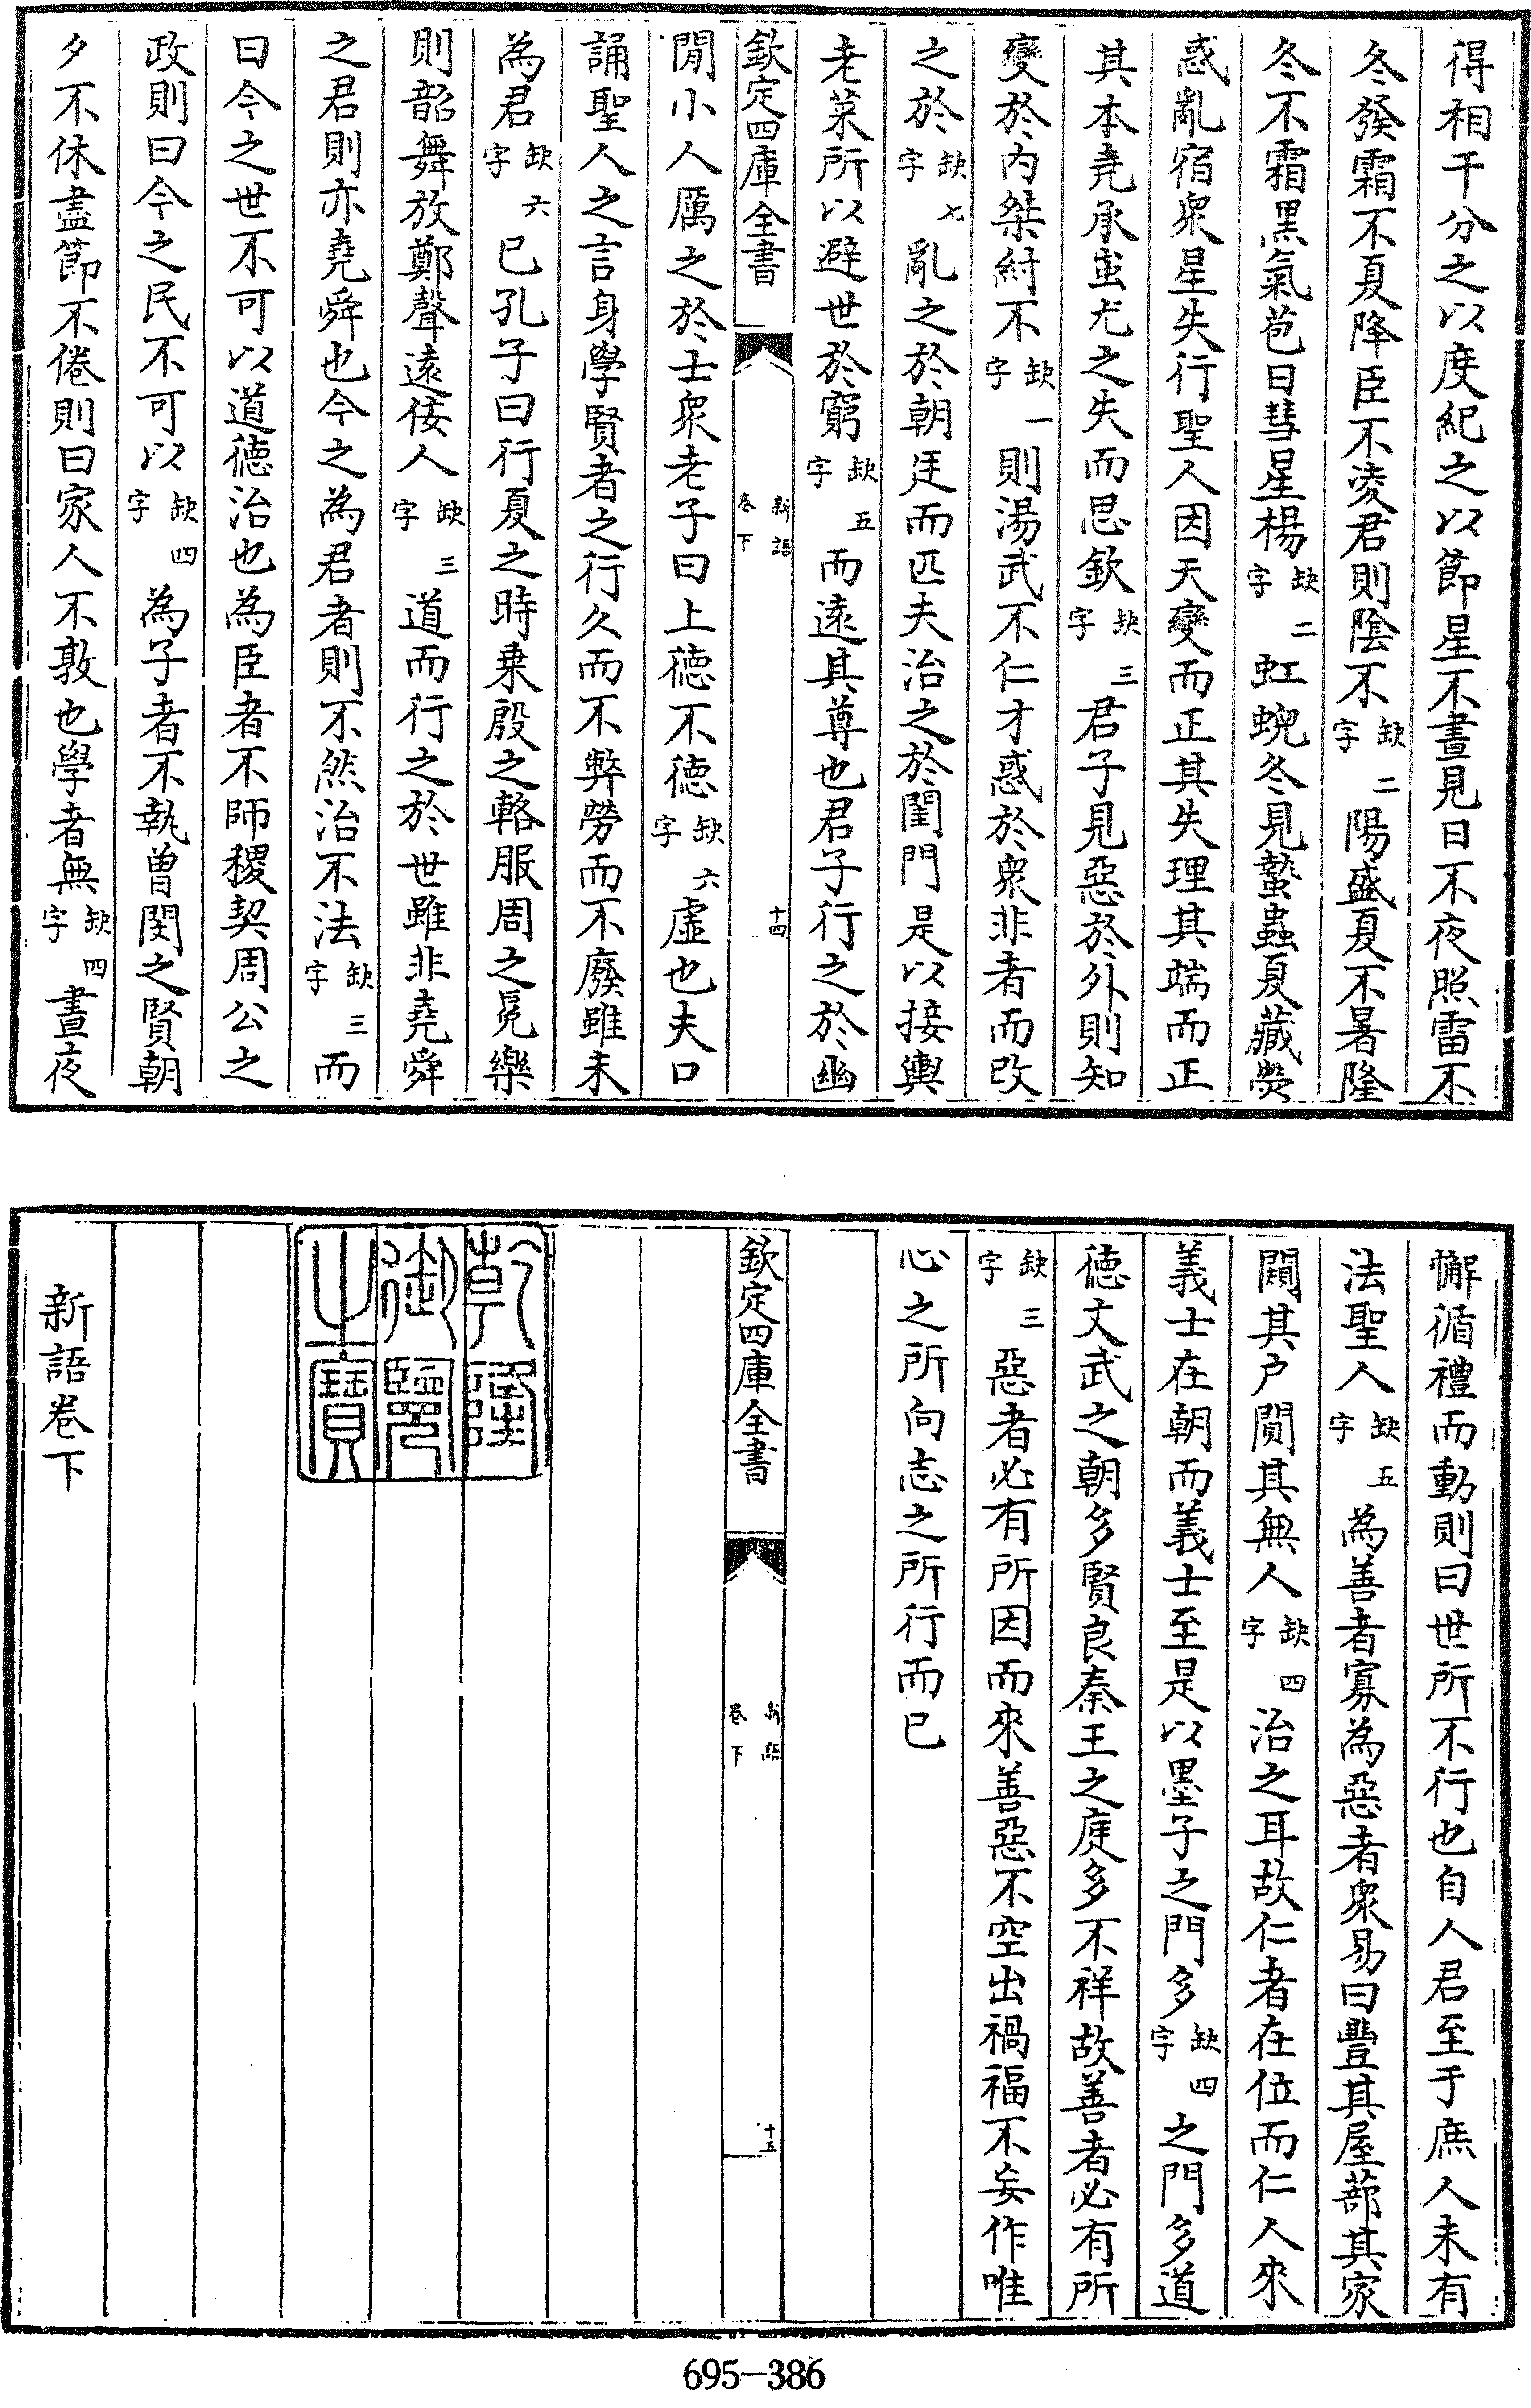 得相干分之以度紀之以節星不晝見日不夜照雷不
冬發霜不夏降臣不凌君則陰不缺二字陽盛夏不暑隆
冬不霜黑氣苞日彗星楊缺二字虹蜺冬見蟄蟲夏藏熒
惑亂宿衆星失行聖人因天變而正其失理其端而正
其本堯承蚩尤之失而思欽缺三字君子見惡於外則知
變於内桀紂不缺一字則湯武不仁才惑於衆非者而改
之於缺七字亂之於朝廷而匹夫治之於閨門是以接輿
老菜所以避世於窮缺五字而遠其尊也君子行之於幽
欽定四庫全書
新語
卷下
十四
閒小人厲之於士衆老子曰上徳不徳缺六字虛也夫口
誦聖人之言身學賢者之行久而不弊勞而不廢雖未
為君缺六字已孔子曰行夏之時乗殷之輅服周之冕樂
則韶舞放鄭聲遠佞人缺三字道而行之於世雖非堯舜
之君則亦堯舜也今之為君者則不然治不法缺三字而
曰今之世不可以道徳治也為臣者不師稷契周公之
政則曰今之民不可以缺四字為子者不執曽閔之賢朝
夕不休盡節不倦則曰家人不敦也學者無缺四字晝夜
懈循禮而動則曰世所不行也自人君至于庶人未有
法聖人缺五字為善者寡為惡者衆易曰豐其屋蔀其家
闚其戶闃其無人缺四字治之耳故仁者在位而仁人來
義士在朝而義士至是以墨子之門多缺四字之門多道
徳文武之朝多賢良秦王之庭多不祥故善者必有所
缺三字惡者必有所因而來善惡不空出禍福不妄作唯
心之所向志之所行而已
欽定四庫全書
新語
卷下
十五
乾隆
御覽
之寶
新語卷下
695—386